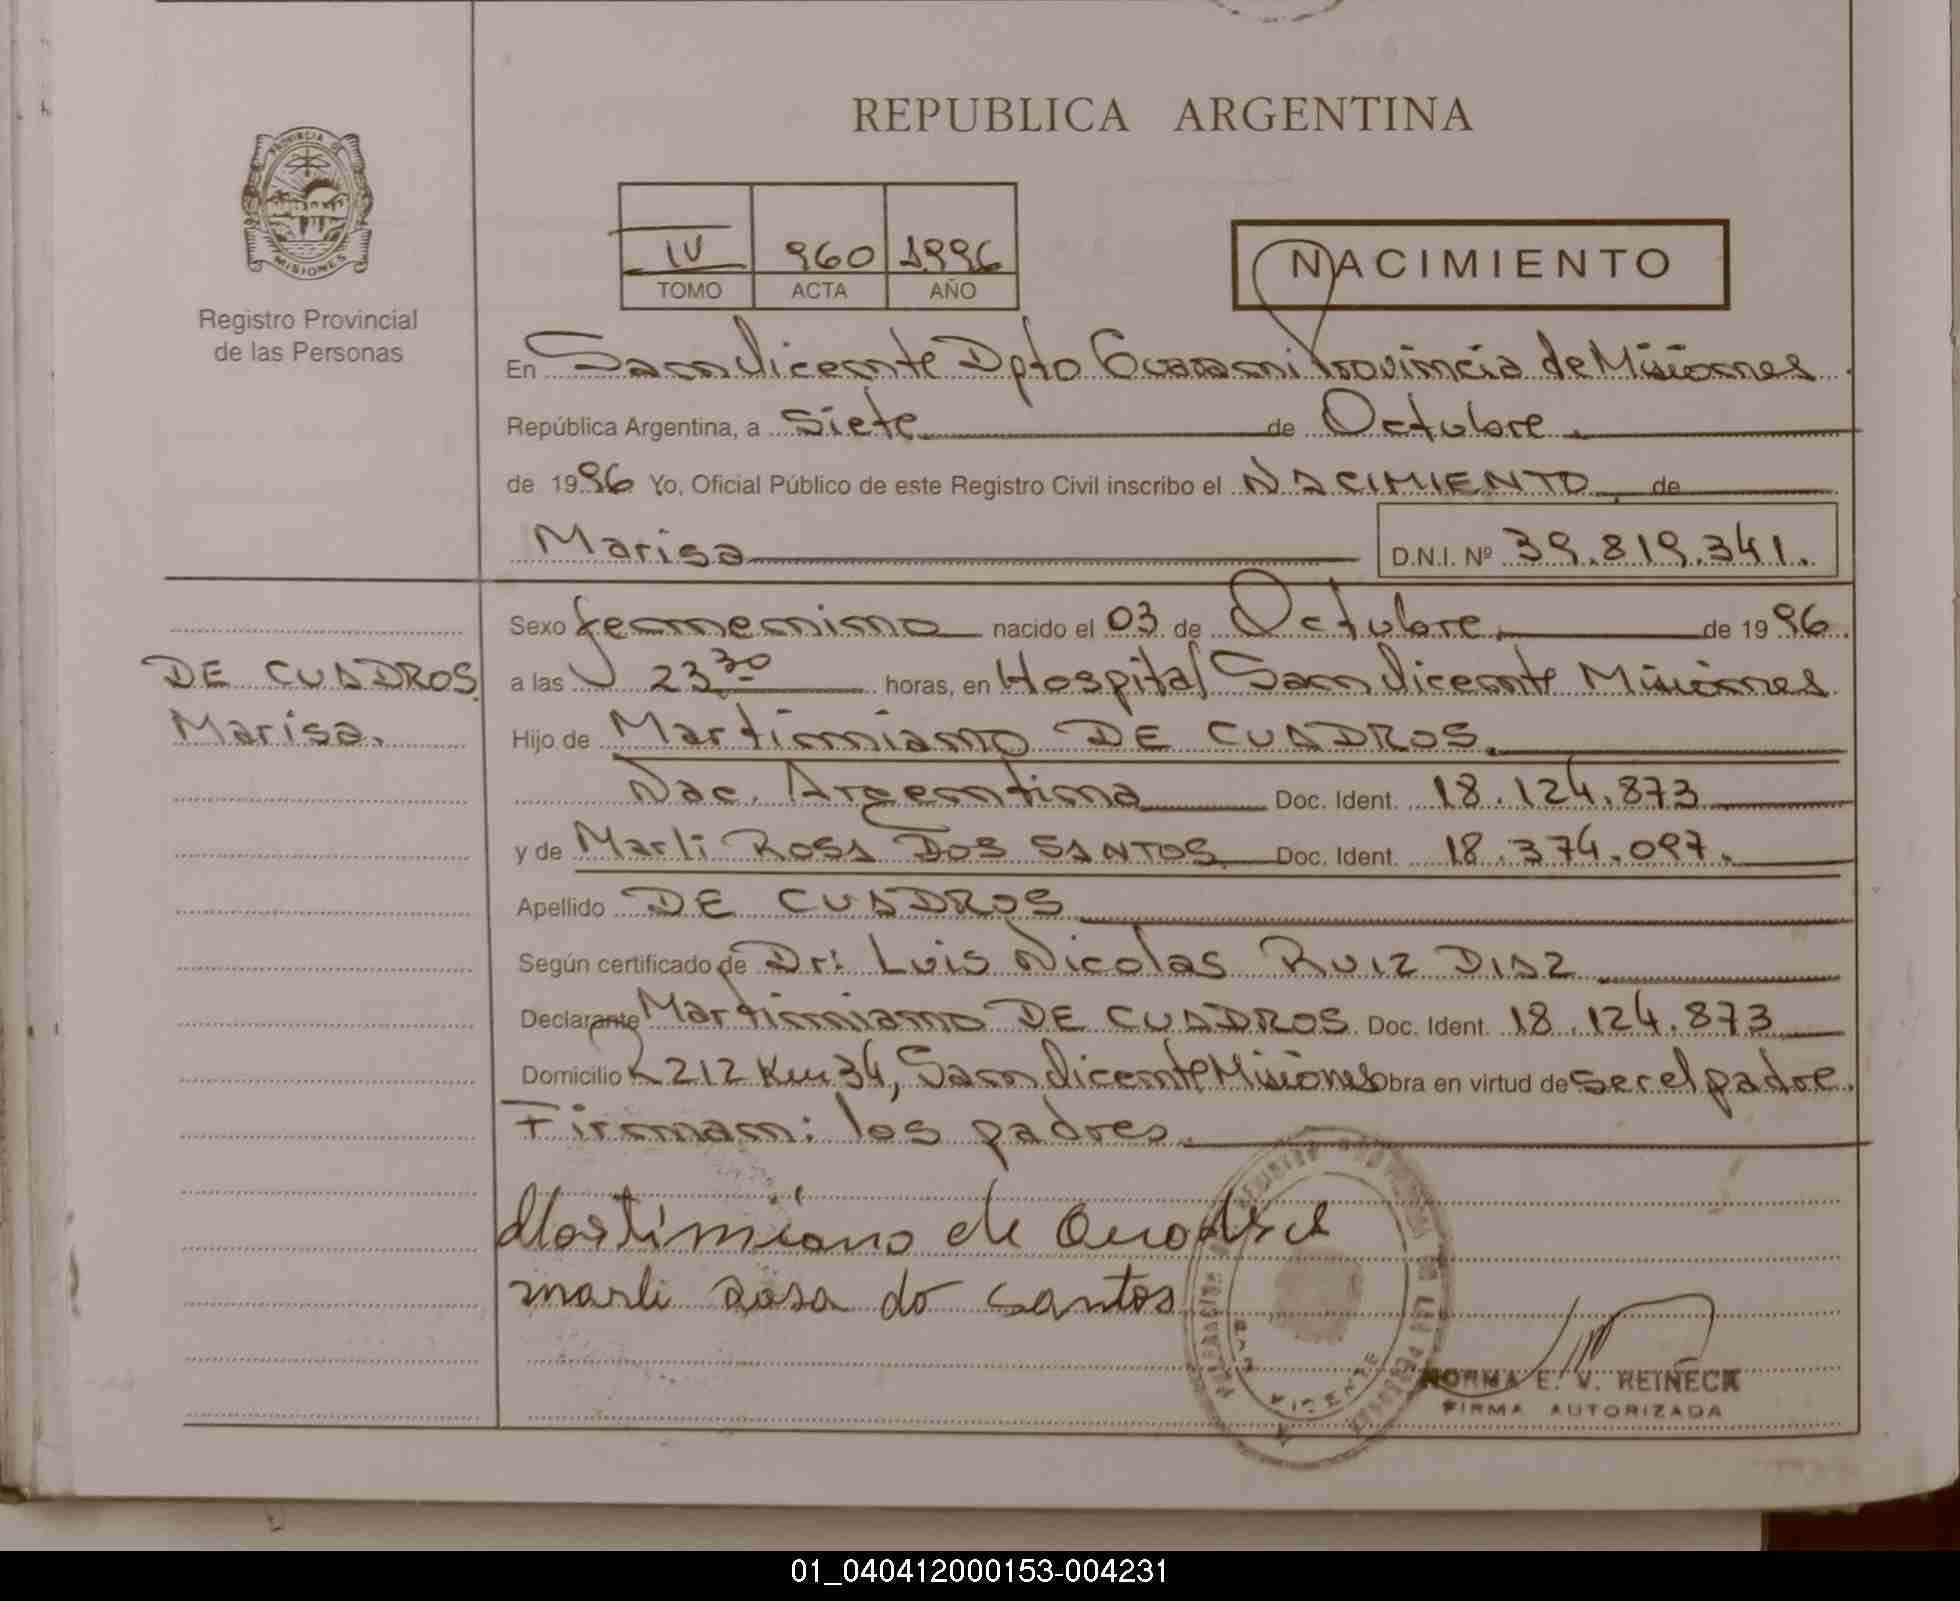 REPUBLICA ARGENTINA
PROVINCIA DE
MISIONES
Registro Provincial
de las Personas
IV 960 1996
TOMO ACTA AÑO
NACIMIENTO
En San Vicente Dpto Guarani Provincia de Misiones
República Argentina, a Siete de Octubre
de 1996 Yo, Oficial Público de este Registro Civil inscribo el NACIMIENTO de
Marisa D.N.I. Nº 39.819.341.
Sexo femenino nacido el 03 de Octubre de 1996
DE CUADROS
Marisa.
a las 23 30 horas, en Hospital San Vicente Misiones
Hijo de Martiniano DE CUADROS
Nac. Argentina Doc. Ident. 18.124.873
y de Marli ROSA DOS SANTOS Doc. Ident. 18.374.097.
Apellido DE CUADROS
Según certificado de Dr: Luis Nicolas RUIZ DIAZ
Declarante Martiniano DE CUADROS Doc. Ident. 18.124.873
Domicilio R 212 Km 34, San Vicente Misiones Obra en virtud de ser el padre.
Firman: los padres.
Martimiano de
marli rosa do santos
NORMA E. V. REINECK
FIRMA AUTORIZADA
01_040412000153-004231